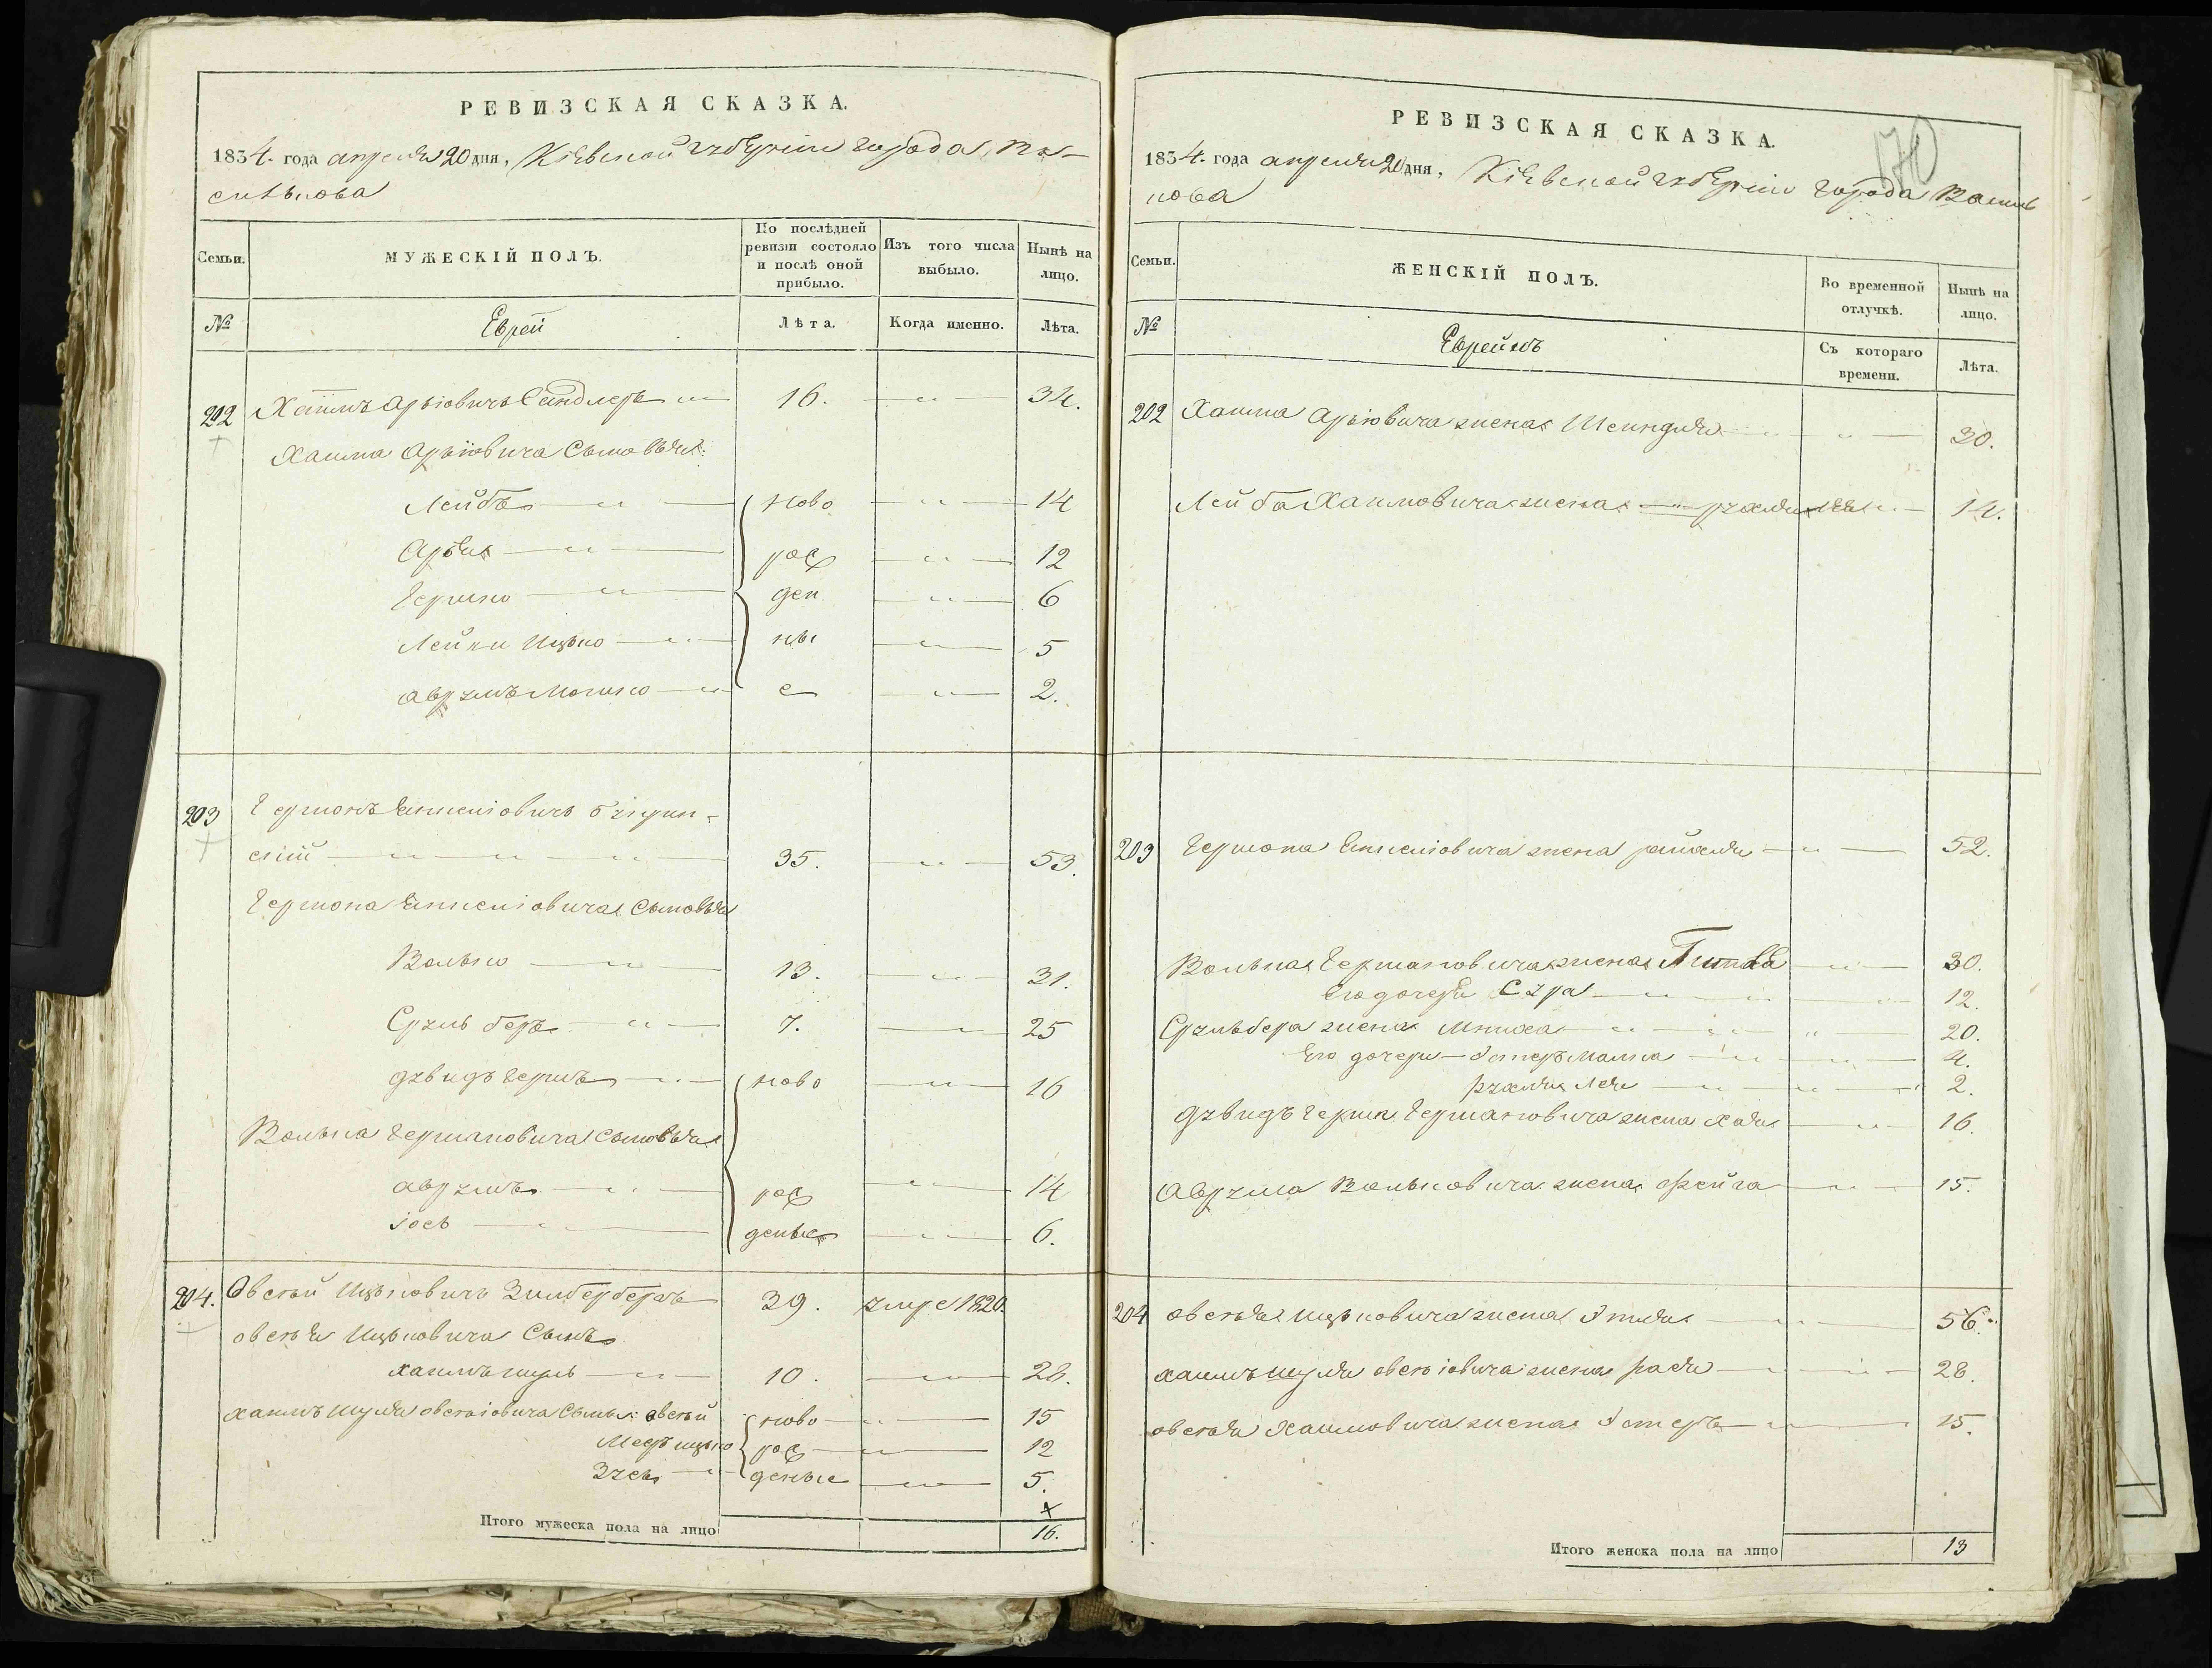 РЕВИЗСКАЯ СКАЗКА.
1834. года апреля 20 дня, Кіевской губерніи города Ва-
силькова
Семьи.
МУЖЕСКІЙ ПОЛЪ.
По послѣдней ревизіи состояло и послѣ оной прибыло.
Изъ того числа выбыло.
Нынѣ на лицо.
№
Евреи
Лѣта.
Когда именно.
Лѣта.
202 Хаимъ Арьіовичъ Сандлеръ 16. 34.
Хаима Арьіовича Сыновья:
Лейба ново 14
Арья рож 12
Гершко ден 6
Лейви Ицько ны 5
Аврумъ Мошко е 2.
203 Гершонъ
скій 35. 53.
Гершона Сыновья
Волько 13. 31.
Сруль беръ 7. 25
Дувидъ Гершъ ново 16
Волька Гершановича Сыновья
аврумъ рож 14
Іось деные 6.
204. Овсѣй Ицьковичъ Зильберберхъ 39. умре 1820.
овсѣя Ицьковича Сынъ
хаимъ шулъ 10. 28.
хаимъ шуля овсѣіовича Сыны: овсѣй ново 15
Мееръ ицько рож 12
Зусь деные 5.
х
Итого мужеска пола на лицо 16.
РЕВИЗСКАЯ СКАЗКА.
170
1834. года апреля 20 дня, Кіевской губерніи города Василь
кова
Семьи.
ЖЕНСКІЙ ПОЛЪ.
Во временной отлучкѣ.
Нынѣ на лицо.
№
Евреикъ
Съ котораго времени.
Лѣта.
202 Хаима Арьіовича жена Шейндля 30.
Лейба Хаимовича жена 14.
203 Гершона жена райхля 52.
Волька Гершановича жена 30.
Его дочеря Сура 12.
Срульбера жена Мниха 20.
Его дочери Эстеръ Малка 4.
рухля Лея 2.
Дувидъ Герша Гершановича жена Хая 16.
Аврума Вольковича жена Фейга 15.
204 овсѣя Ицьковича жена Этля 56.
хаимъ шуля овсѣіовича жена рася 28.
овсѣя Хаимовича жена Эстеръ 15.
Итого женска пола на лицо 13